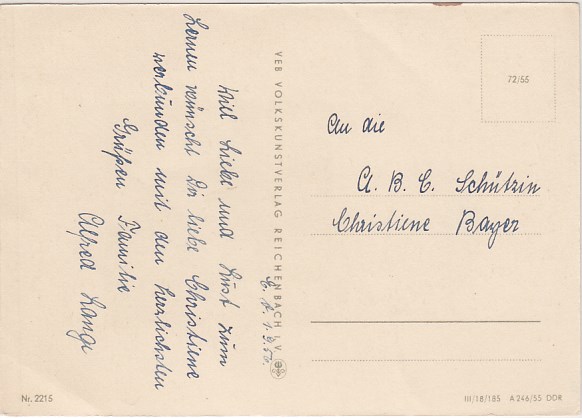 Viel Liebe und Lust zum
Lernen wünscht Dir liebe Christiene
verbunden mit den herzlichsten
Grüßen Familie
Alfred Lange
VEB VOLKSKUNSTVERLAG REICHENBACH i. V.
72/55
An die
A. B. C. Schützin
Christiene Bayer
Nr. 2215
III/18/185 A 246/55 DDR